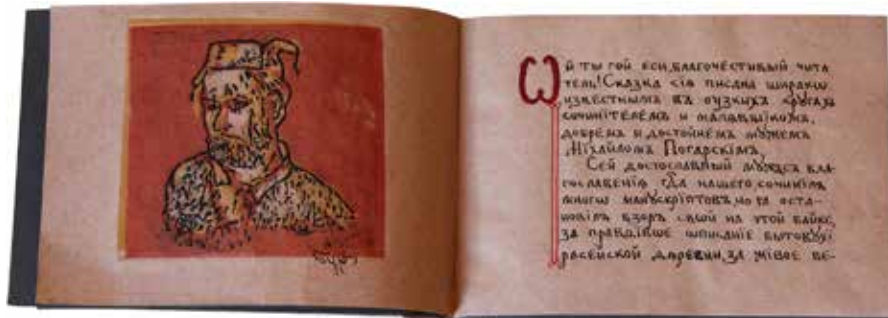 Ѡй ты гой еси, благочестивый чита
тель! Сказка сiя писана широкѡ
извѣстнымъ въ оузкихъ кругахъ
сочинiтелемъ и малевщикомъ,
добрѣмъ и достойнѣмъ мужемъ
Мiхайломъ Погарскiмъ.
Сей достославный мужъ съ бла-
гославенiя Гда нашего сочинiлъ
многѡ манускрiптовъ, но та оста-
новiлъ взоръ свой на этой байке,
за правдiвое ѡписанiе бытовухi
расейской дѣревни, за жiвое ве-